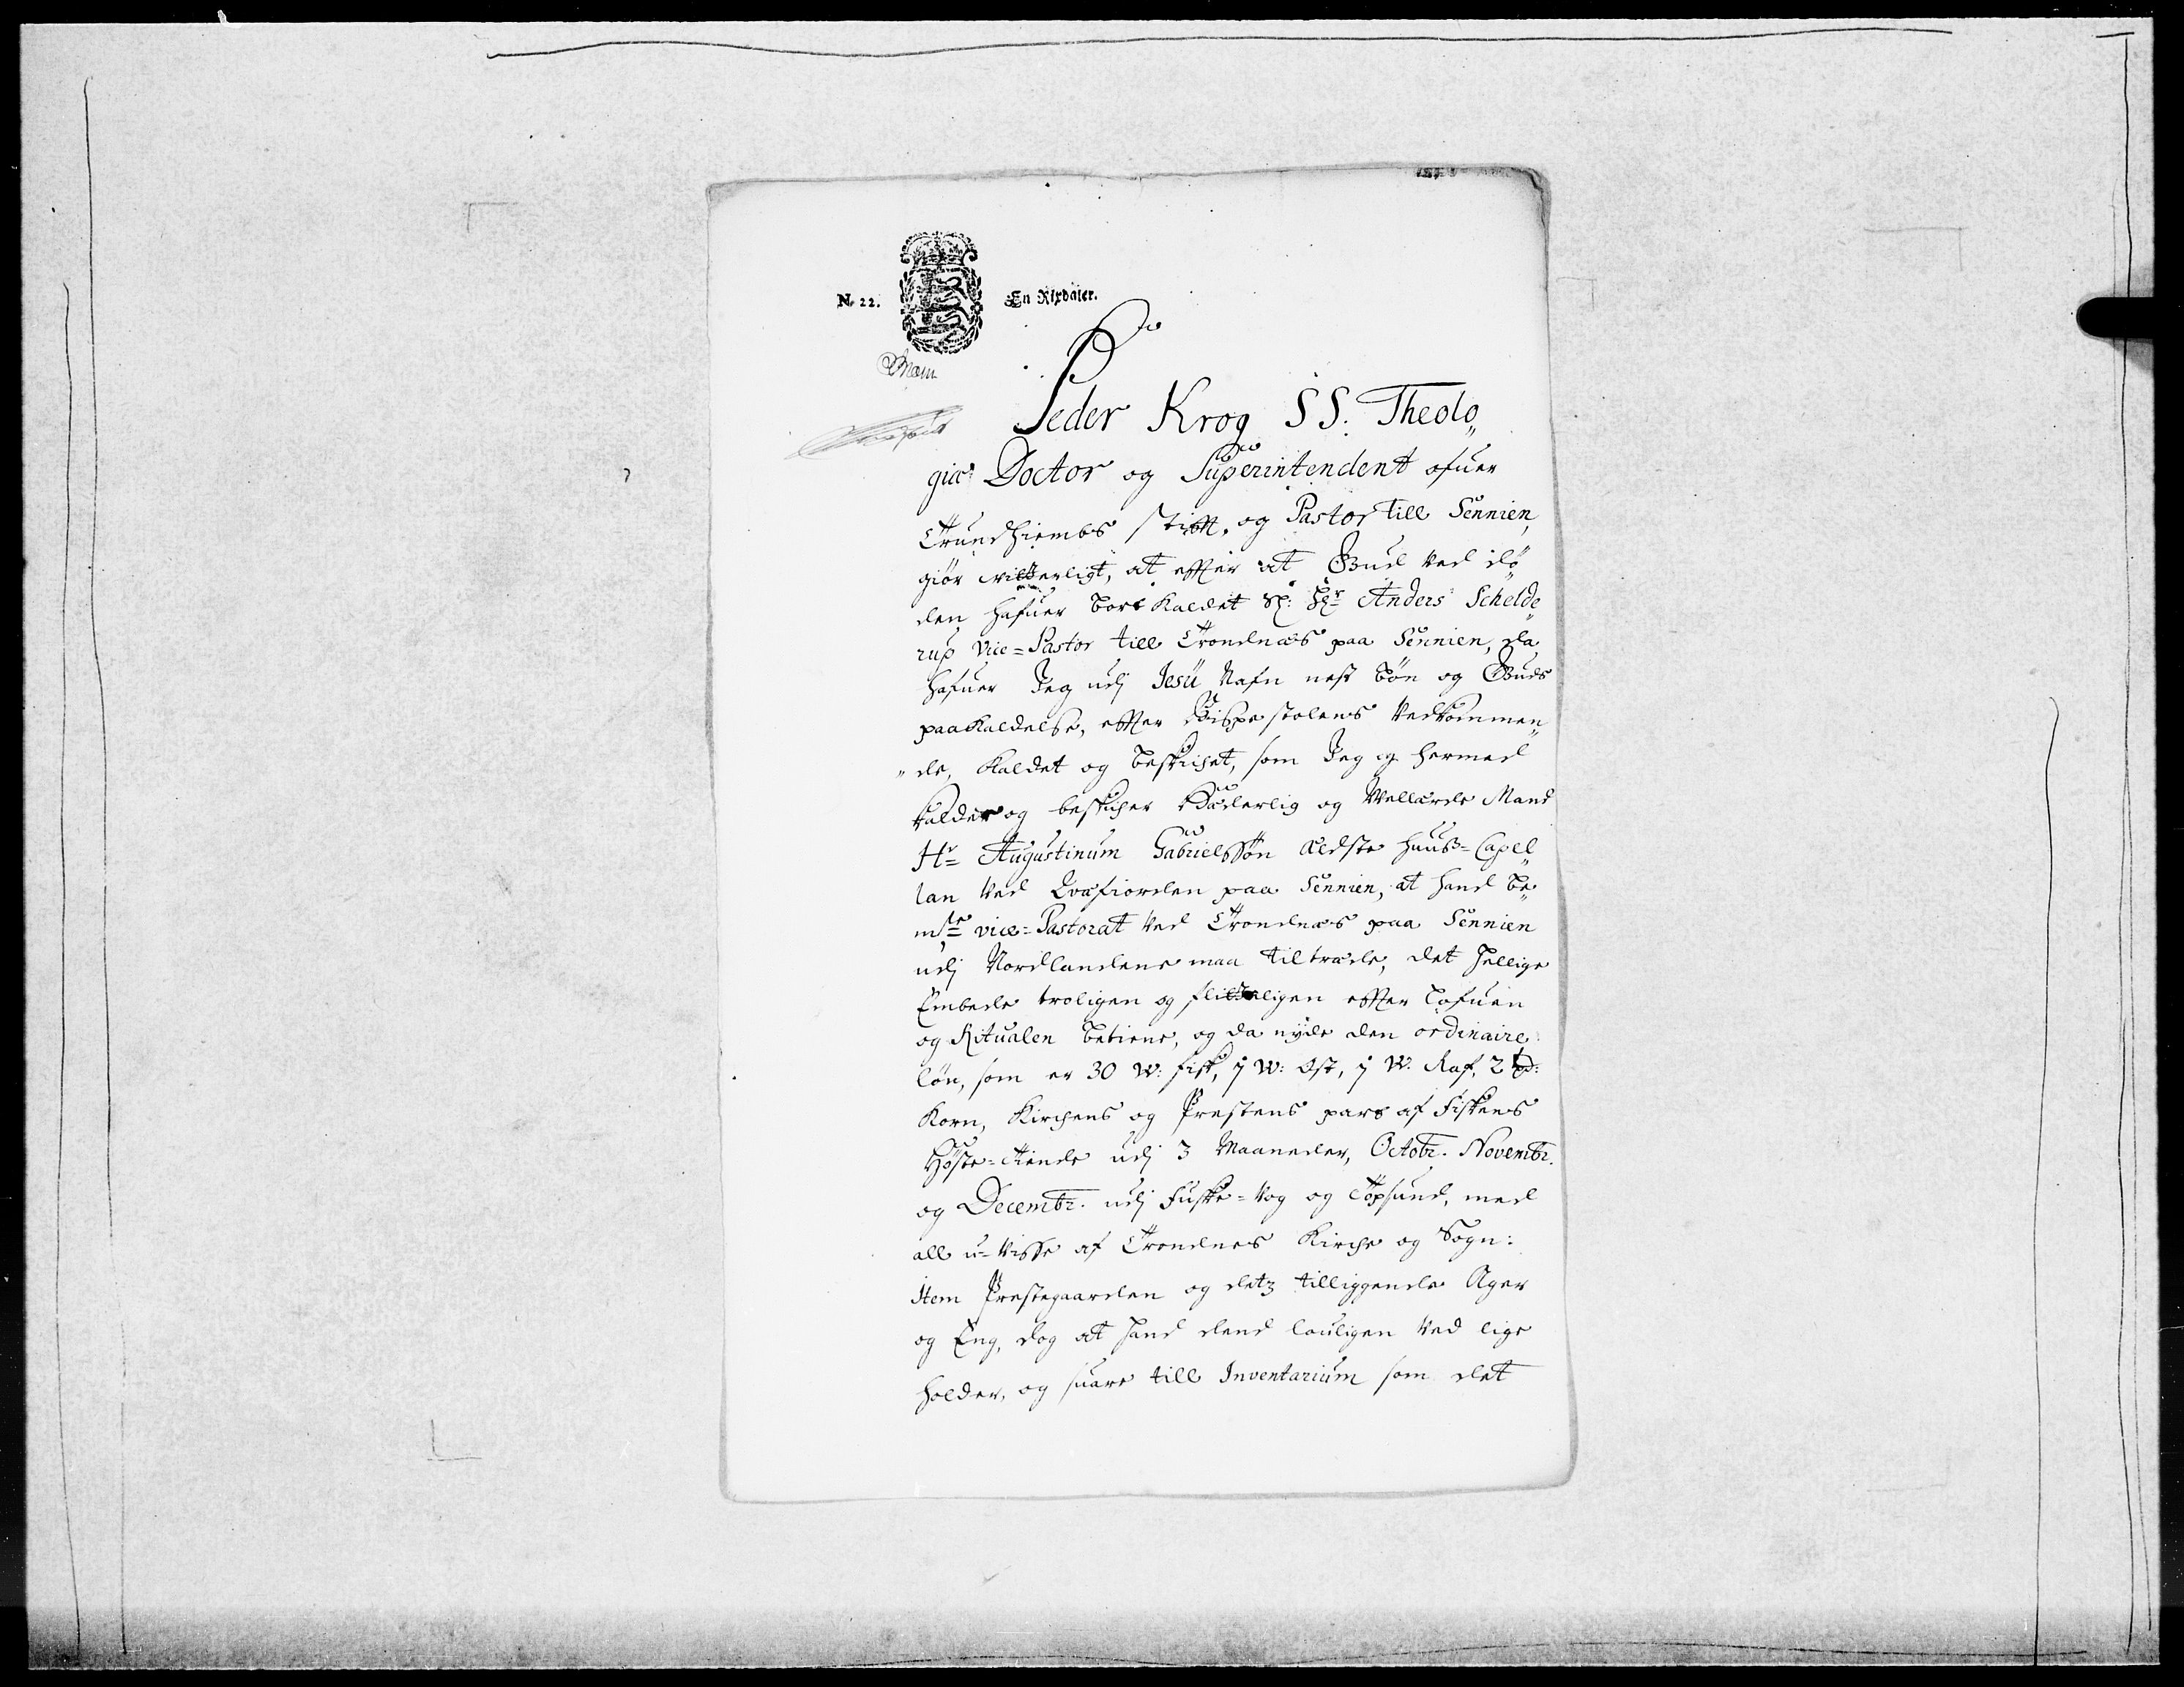 N. 22.
En Rixdaler.
Peder Krog SS. Theolo„
giæ Doctor og Superintendent ofuer
Trundhiembs Stift, og Pastor till Sennien,
giör vitterligt, at efter at Gud ved dö„
den hafuer bort kaldet Sl: Hr Anders Schelde„
rup Vice=Pastor till Trondnæs paa Sennien, da
hafuer Jeg udj Jesu Nafn nest bön og Guds
paakaldelse, efter Bispestolens Vedkommen„
„de, kaldet og beskichet, som Jeg og hermed
kalder og beskicher Hæderlig og Vellærde Mand
Hr Augustinum Gabrielssön ældste Huus=Capel„
lan ved Qvæfiorden paa Sennien, at hand be„
mte vice=Pastorat ved Trondnæs paa Sennien
udj Nordlandene maa tiltræde, det hellige
Embede troligen og flitteligen efter Lofuen
og Ritualen betiene, og da nyde den ordinaire
lön, som er 30 W: fisk, j W: Ost, j W: Raf, 2 td:
Korn, Kirchens og Prestens part af Fiskens
Höste=Tiende udj 3 Maaneder, Octobr. Novembr.
og Decembr. udj Fuske=Vog og Töpsund, med
all u=Visse af Trondnes Kirche og Sogn:
Item Prestegaarden og detz tilliggende Ager
og Eng, dog at hand dend louligen ved lige
holder, og suare till Inventarium som det